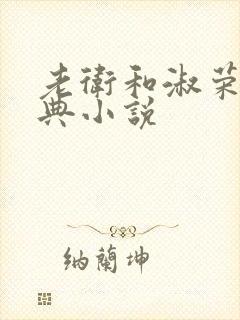 老衛和淑荣
典小說
納蘭坤